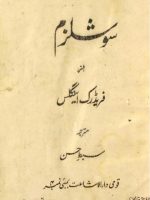 سوشلزم
فریڈرک اینگلس
مترجمہ
سبط حسن
قومی دارالاشاعت بمبئی نمبر ۴